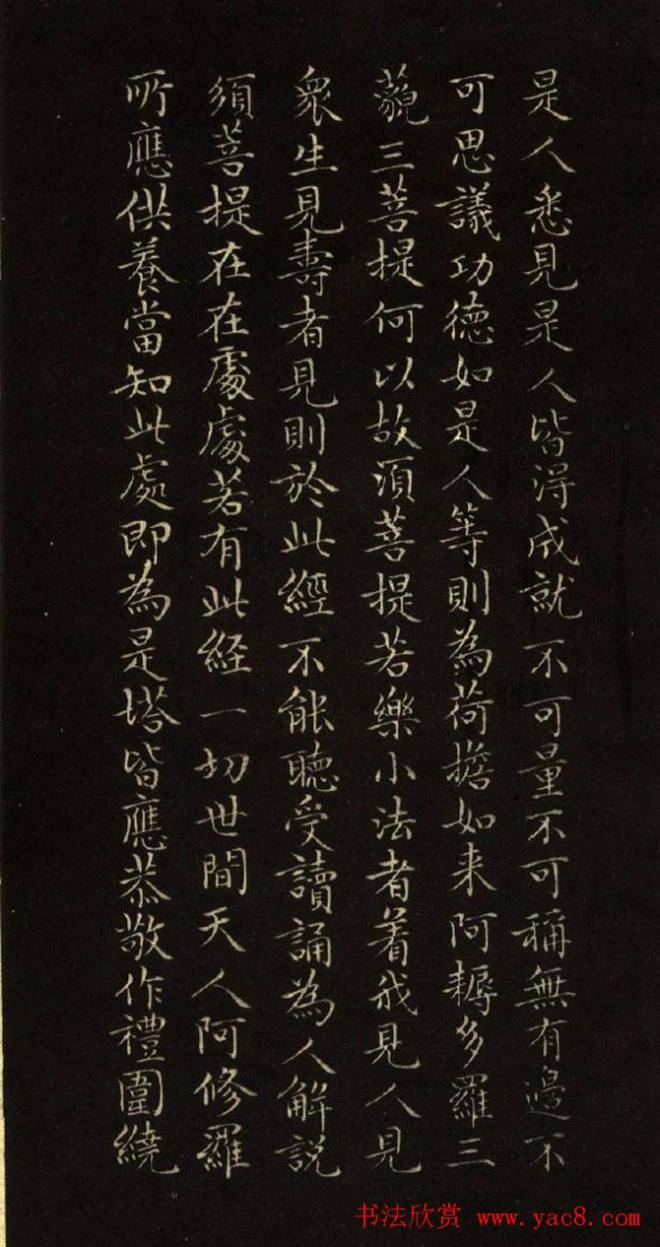 是人悉見是人皆得成就不可量不可稱無有邊不
可思議功德如是人等則為荷擔如来阿耨多羅三
藐三菩提何以故須菩提若樂小法者着我見人見
衆生見壽者見則於此經不能聽受讀誦為人解説
須菩提在在處處若有此経一切世間天人阿修羅
所應供養當知此處即為是塔皆應恭敬作禮圍繞
书法欣赏 www.yac8.com